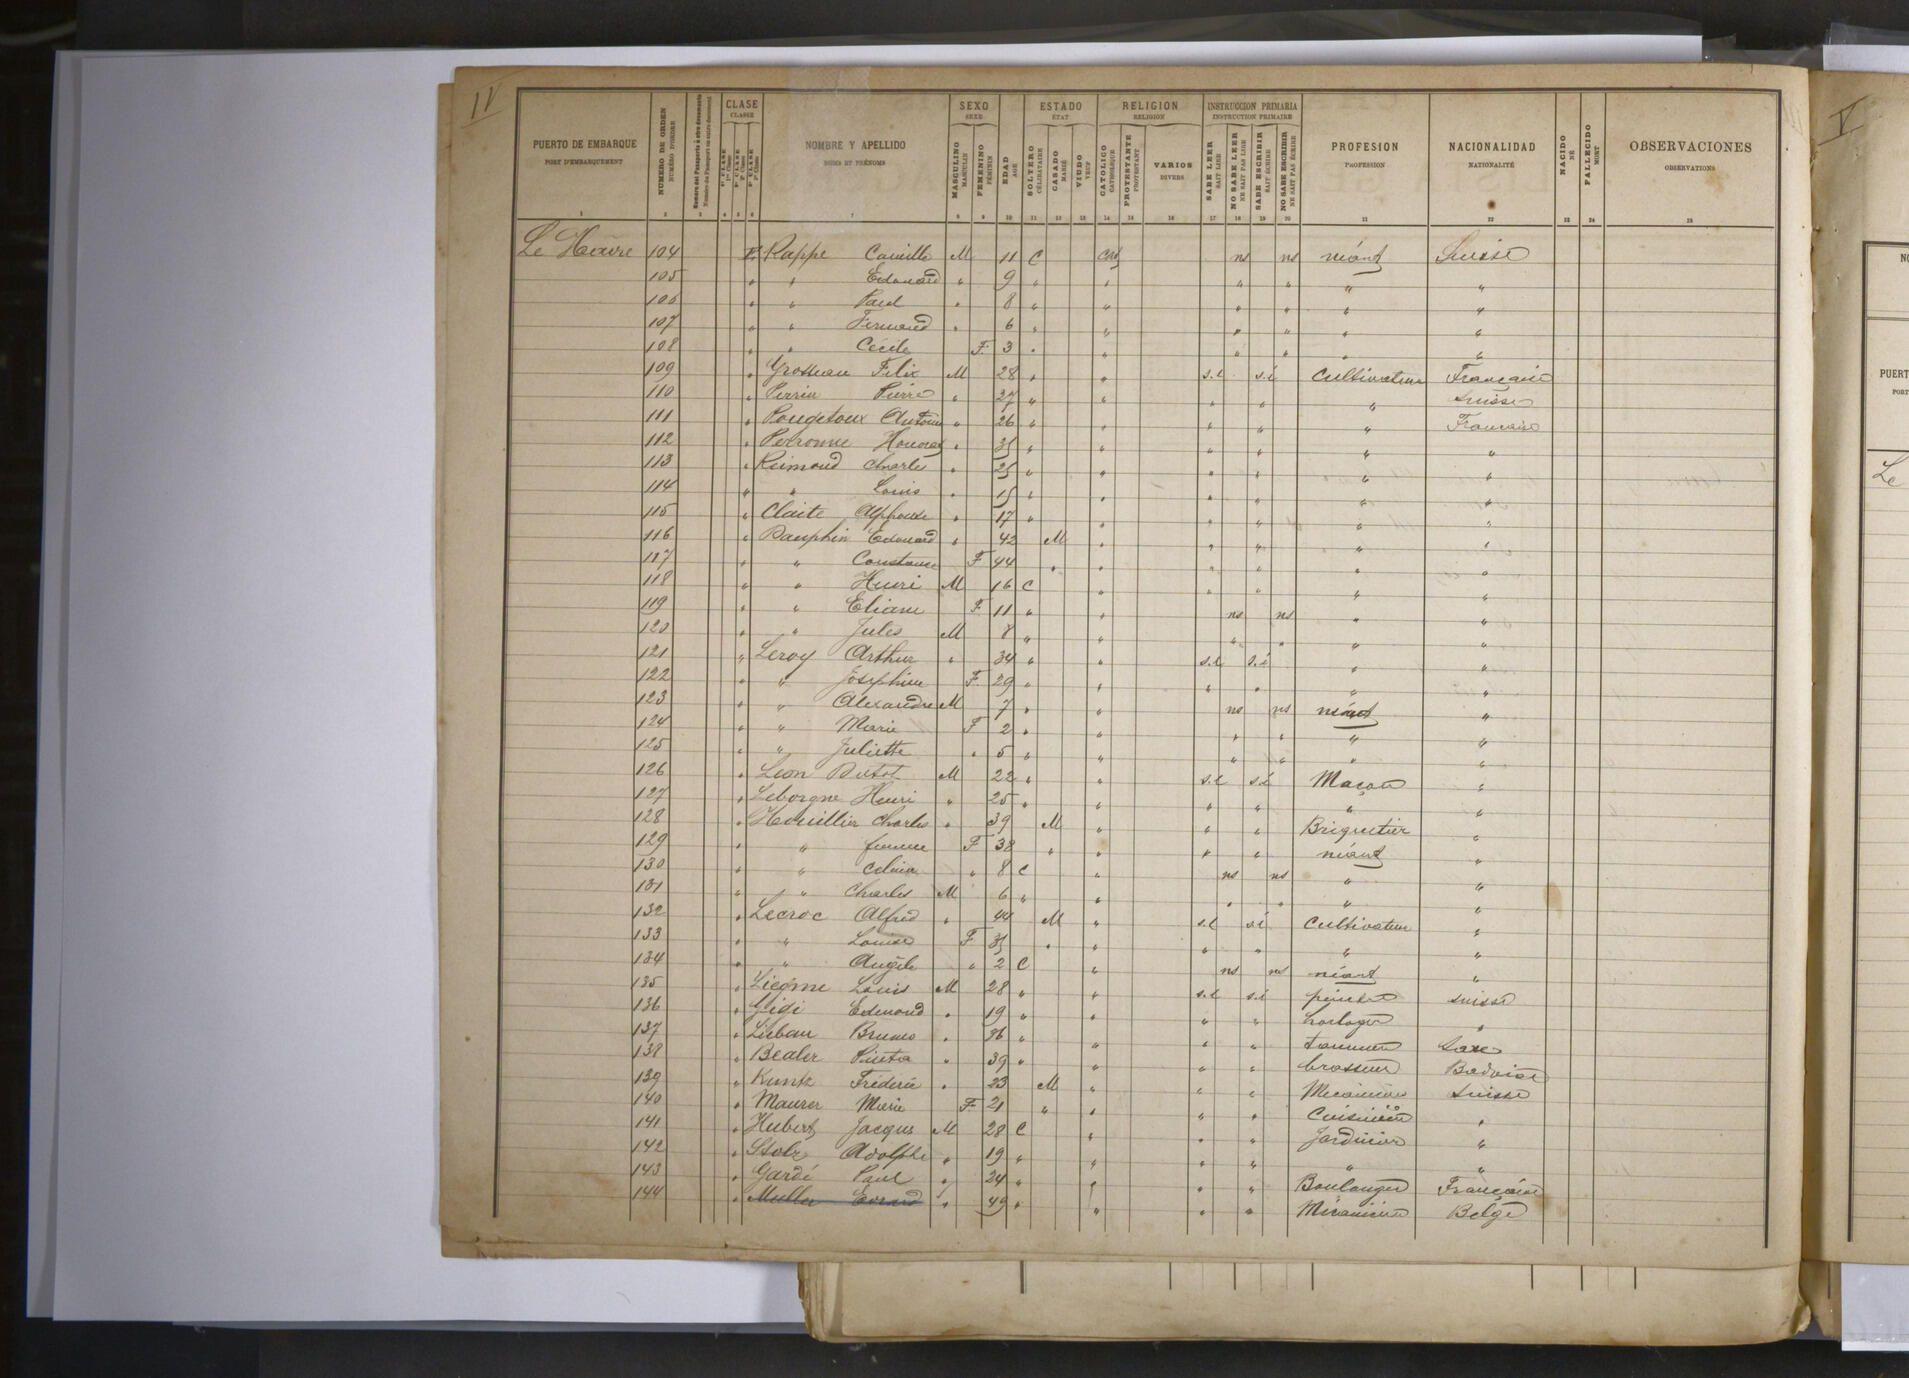 IV
PUERTO DE EMBARQUE
PORT D'EMBARQUEMENT
NUMERO DE ORDEN
NUMÉRO D'ORDRE
Numero del Pasaporte ú otro documento
Numéro du Passeport ou autre document
CLASE
CLASSE
1ª CLASE
1re Classe
2ª CLASE
2e Classe
3ª CLASE
3e Classe
NOMBRE Y APELLIDO
NOMS ET PRÉNOMS
SEXO
SEXE
MASCULINO
MASCULIN
FEMENINO
FÉMININ
EDAD
AGE
ESTADO
ÉTAT
SOLTERO
CÉLIBATAIRE
CASADO
MARIÉ
VIUDO
VEUF
RELIGION
RELIGION
CATOLICO
CATHOLIQUE
PROTESTANTE
PROTESTANT
VARIOS
DIVERS
INSTRUCCION PRIMARIA
INSTRUCTION PRIMAIRE
SABE LEER
SAIT LIRE
NO SABE LEER
NE SAIT PAS LIRE
SABE ESCRIBIR
SAIT ÉCRIRE
NO SABE ESCRIBIR
NE SAIT PAS ÉCRIRE
PROFESION
PROFESSION
NACIONALIDAD
NATIONALITÉ
NACIDO
NÉ
FALLECIDO
MORT
OBSERVACIONES
OBSERVATIONS
1 2 3 4 5 6 7 8 9 10 11 12 13 14 15 16 17 18 19 20 21 22 23 24 25
Le Havre 104 Rappe Camille M 11 C cat ns ns néant Suisse
105 " " Edouard " 9 " " " " " "
106 " " Paul " 8 " " " " " "
107 " " Fernand " 6 " " " " " "
108 " " Cécile F 3 " " " " " "
109 " Grosseau Felix M 28 " " s.l s.é Cultivateur Française
110 " Perrin Pierre " 27 " " " " " Suisse
111 " Pougetoux Antoine " 26 " " " " " Française
112 " Perronne Honoré " 35 " " " " " "
113 " Reimond Charles " 25 " " " " " "
114 " " Louis " 15 " " " " " "
115 " Claite Alphonse " 17 " " " " " "
116 " Dauphin Edouard " 42 M " " " " "
117 " " Constance F 44 " " " " " "
118 " " Henri M 16 C " " " " "
119 " " Eliane F 11 " " ns ns " "
120 " " Jules M 8 " " " " " "
121 " Leroy Arthur " 34 " " s.l s.é " "
122 " " Joséphine F 29 " " " " " "
123 " " Alexandre M 7 " " ns ns néant "
124 " " Marie F 2 " " " " " "
125 " " Juliette " 5 " " " " " "
126 " Leon Dutot M 22 " " s.l s.é Maçon "
127 " Leborgne Henri " 25 " " " " " "
128 " Houillier Charles " 39 M " " " Briquetier "
129 " " femme F 38 " " " " néant "
130 " " Celina " 8 C " ns ns " "
131 " " Charles M 6 " " " " " "
132 " Lecroc Alfred " 44 M " s.l s.é Cultivateur "
133 " " Louise F 35 " " " " " "
134 " " Angèle " 2 C " ns ns néant "
135 " Liegme Louis M 28 " " s.l s.é peintre suisse
136 " Gigi Edmond " 19 " " " " horloger "
137 " Liebau Bruno " 36 " " " " tanneur Saxe
138 " Bealer " 39 " " " " brasseur Badoise
139 " Kuntz Fréderic " 23 M " " " Mécanicien Suisse
140 " Maurer Marie F 21 " " " " Cuisinière "
141 " Hubert Jacques M 28 C " " " Jardinier "
142 " Stolz Adolphe " 19 " " " " " "
143 " Gardé Paul " 24 " " " " Boulanger Française
144 " Muller " 49 " " " " Mécanicien Belge
V
PUERT
PORT
Le